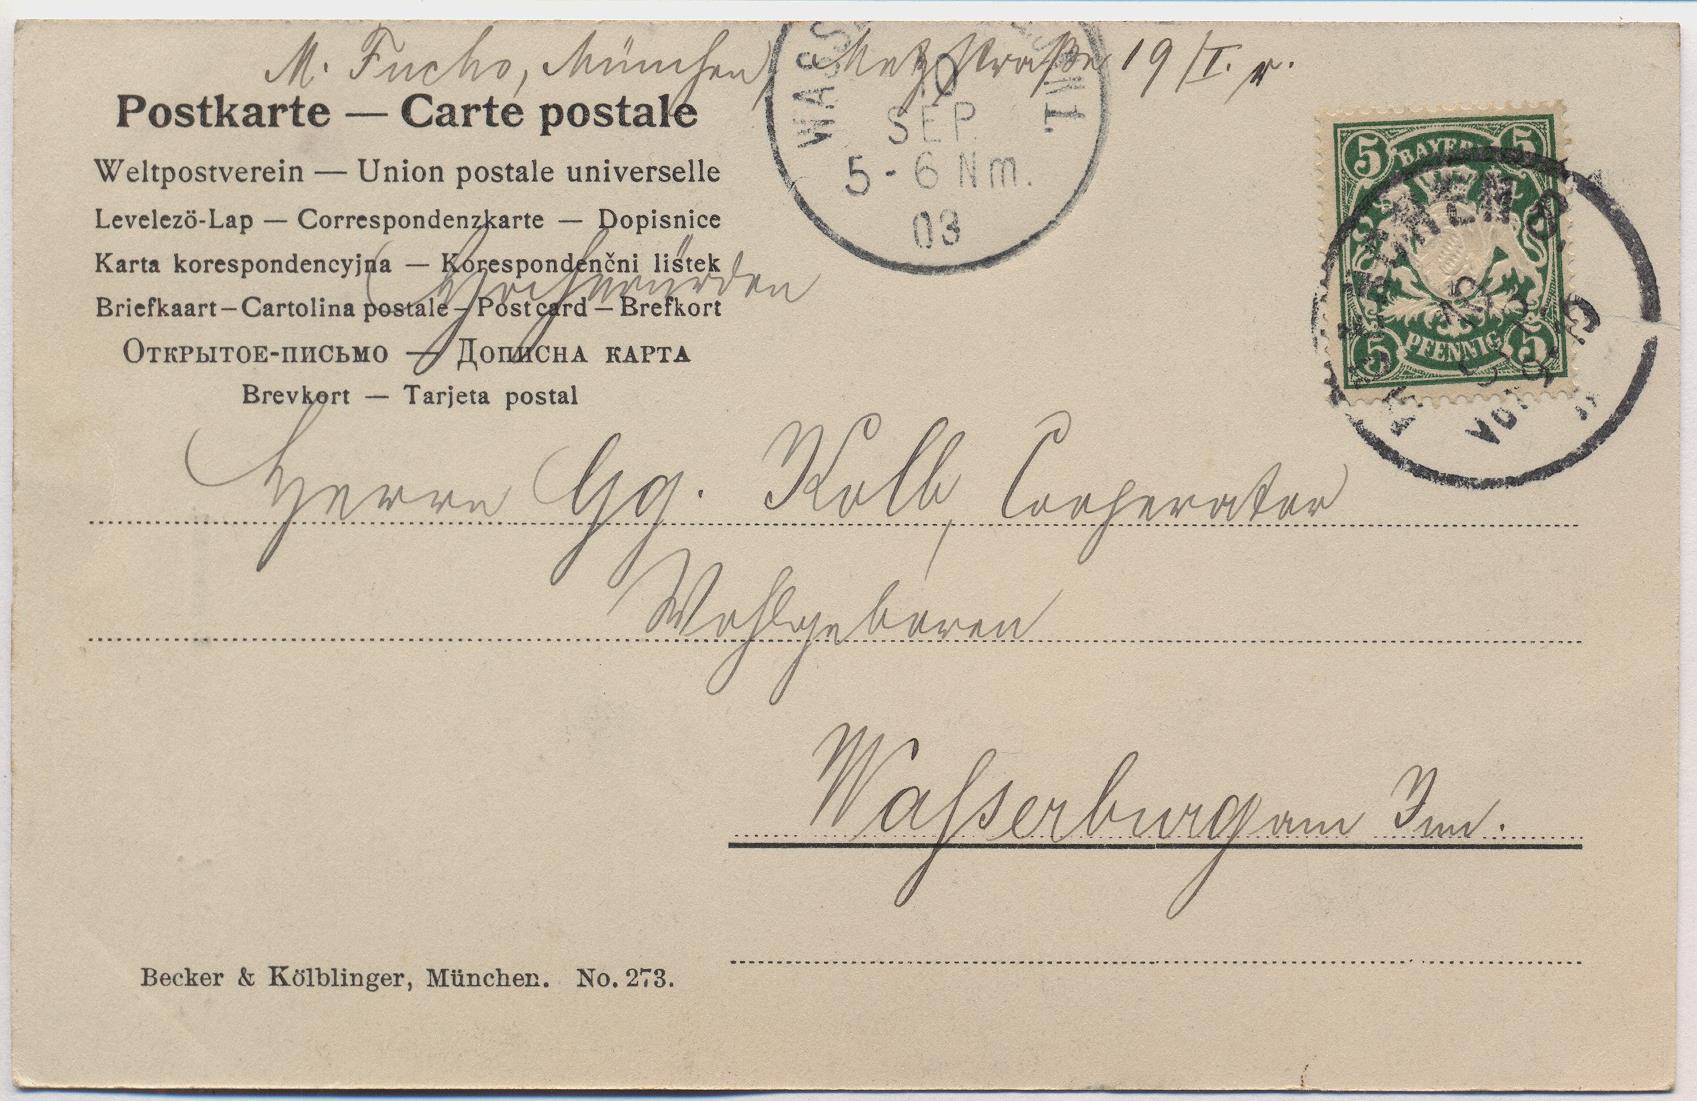 M. Fuchs, München, Metzstraße 19/I. r.
Postkarte — Carte postale
Weltpostverein — Union postale universelle
Levelezö-Lap — Correspondenzkarte — Dopisnice
Karta korespondencyjna — Korespondenčni listek
Briefkaart — Cartolina postale — Post card — Brefkort
Открытое-письмо — Дописна карта
Brevkort — Tarjeta postal
10
SEP.
5-6 Nm.
03
5 BAYERN 5
5 PFENNIG 5
Hochwürden
Herrn Gg. Kolb, Cooperator
Wohlgeboren
Wasserburg am Inn.
Becker & Kölblinger, München. No. 273.